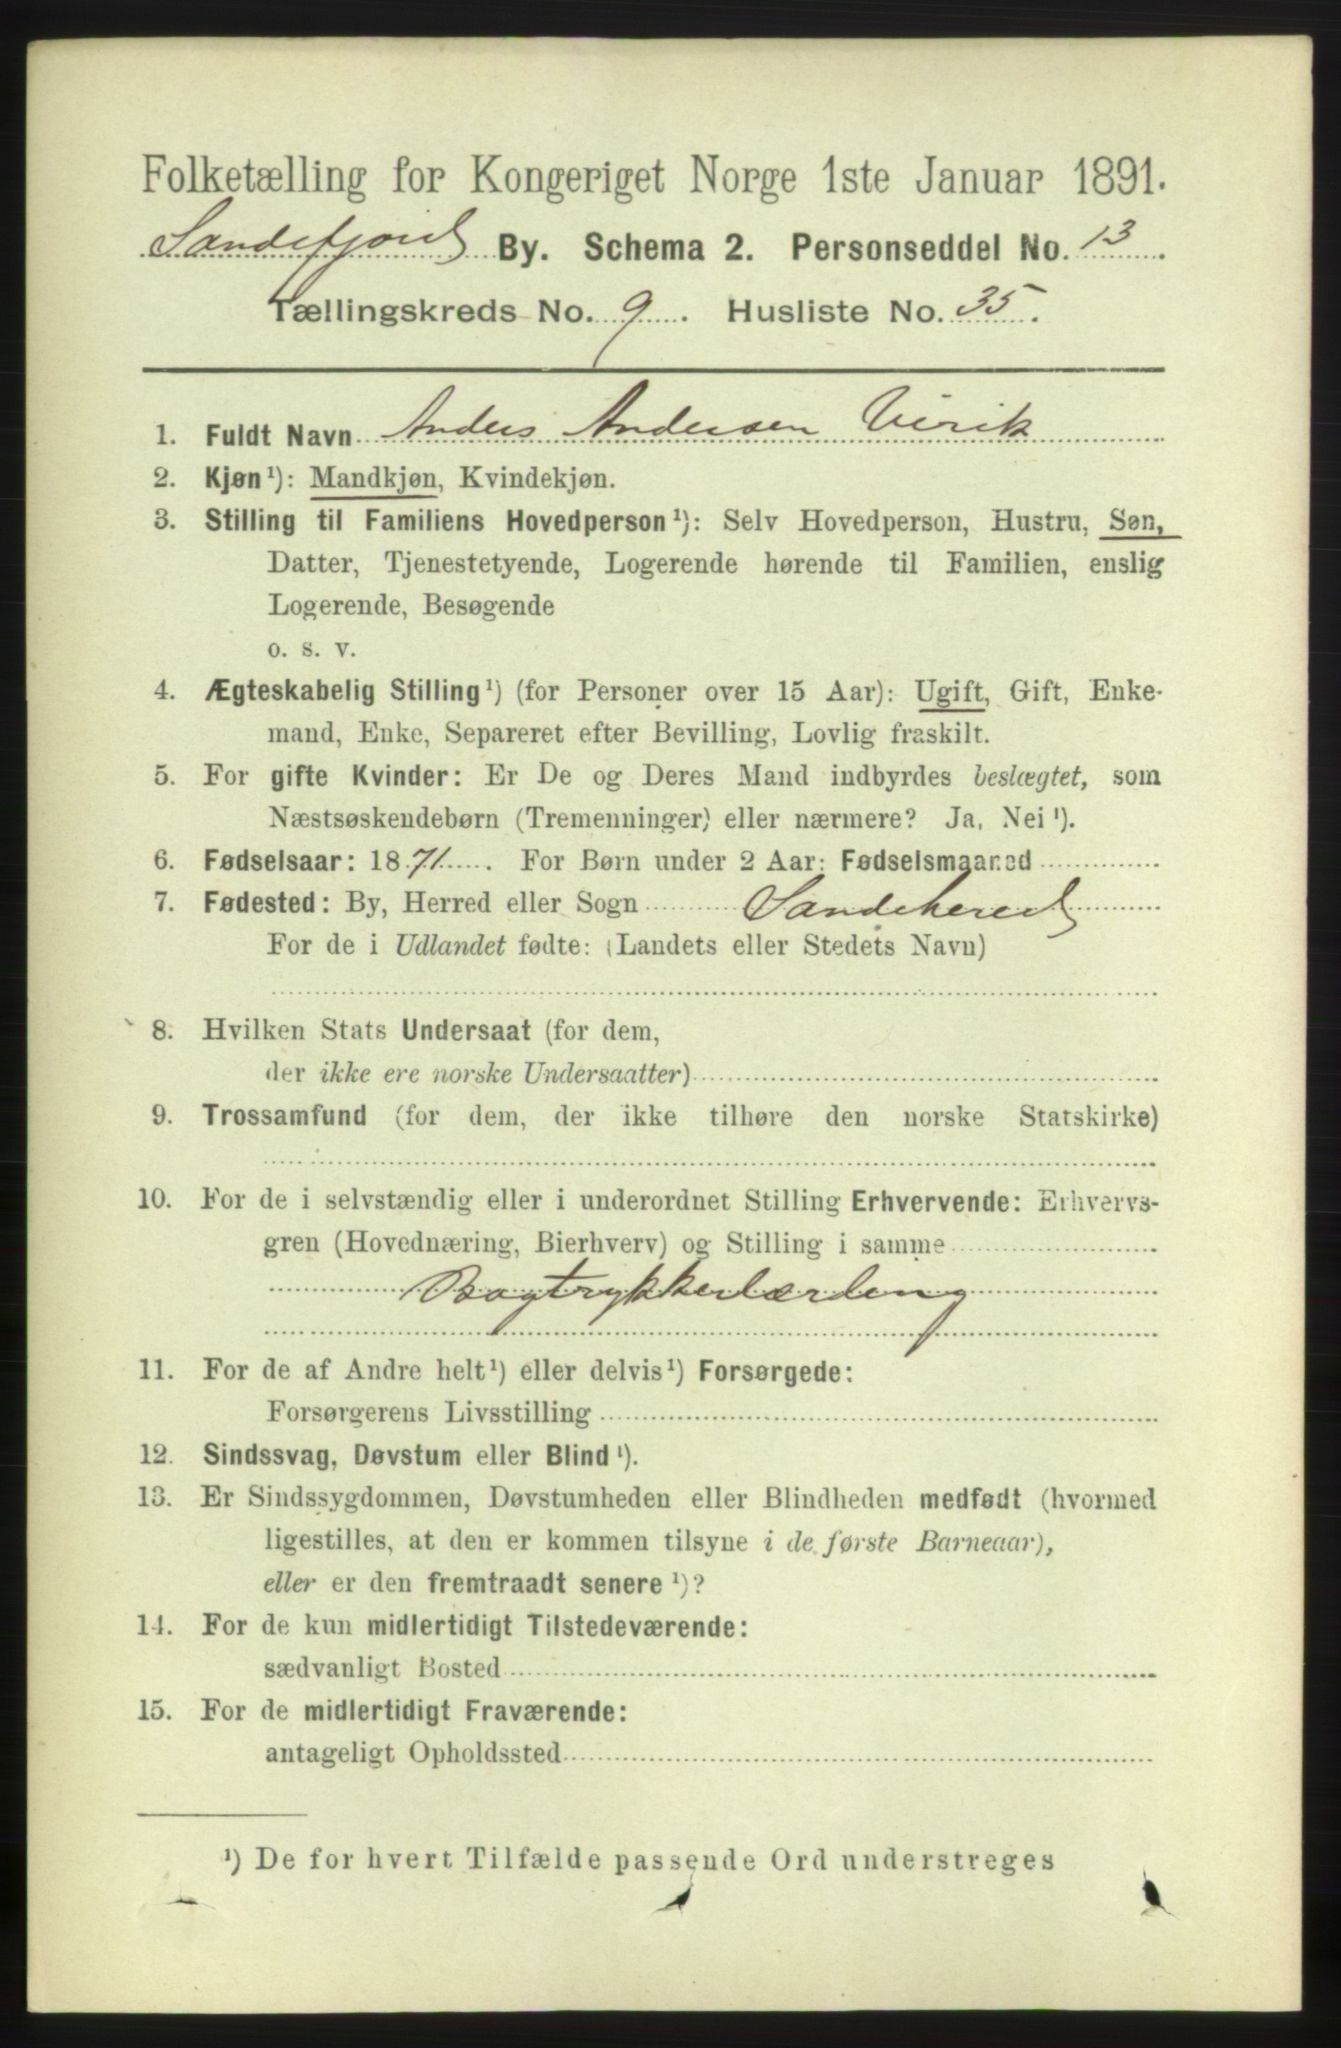 Folketælling for Kongeriget Norge 1ste Januar 1891.
Sandefjord By. Schema 2. Personseddel No. 13.
Tællingskreds No. 9. Husliste No. 35.
1. Fuldt Navn Anders Andersen Virik
2. Kjøn¹): Mandkjøn, Kvindekjøn.
3. Stilling til Familiens Hovedperson¹): Selv Hovedperson, Hustru, Søn,
Datter, Tjenestetyende, Logerende hørende til Familien, enslig
Logerende, Besøgende
o. s. v.
4. Ægteskabelig Stilling¹) (for Personer over 15 Aar): Ugift, Gift, Enke-
mand, Enke, Separeret efter Bevilling, Lovlig fraskilt.
5. For gifte Kvinder: Er De og Deres Mand indbyrdes beslægtet, som
Næstsøskendebørn (Tremenninger) eller nærmere? Ja, Nei¹).
6. Fødselsaar: 1871. For Børn under 2 Aar: Fødselsmaaned
7. Fødested: By, Herred eller Sogn Sandehered
For de i Udlandet fødte: (Landets eller Stedets Navn)
8. Hvilken Stats Undersaat (for dem,
der ikke ere norske Undersaatter)
9. Trossamfund (for dem, der ikke tilhøre den norske Statskirke)
10. For de i selvstændig eller i underordnet Stilling Erhvervende: Erhvervs-
gren (Hovednæring, Bierhverv) og Stilling i samme
Bogtrykkerlærling
11. For de af Andre helt¹) eller delvis¹) Forsørgede:
Forsørgerens Livsstilling
12. Sindssvag, Døvstum eller Blind¹).
13. Er Sindssygdommen, Døvstumheden eller Blindheden medfødt (hvormed
ligestilles, at den er kommen tilsyne i de første Barneaar),
eller er den fremtraadt senere¹)?
14. For de kun midlertidigt Tilstedeværende:
sædvanligt Bosted
15. For de midlertidigt Fraværende:
antageligt Opholdssted
¹) De for hvert Tilfælde passende Ord understreges